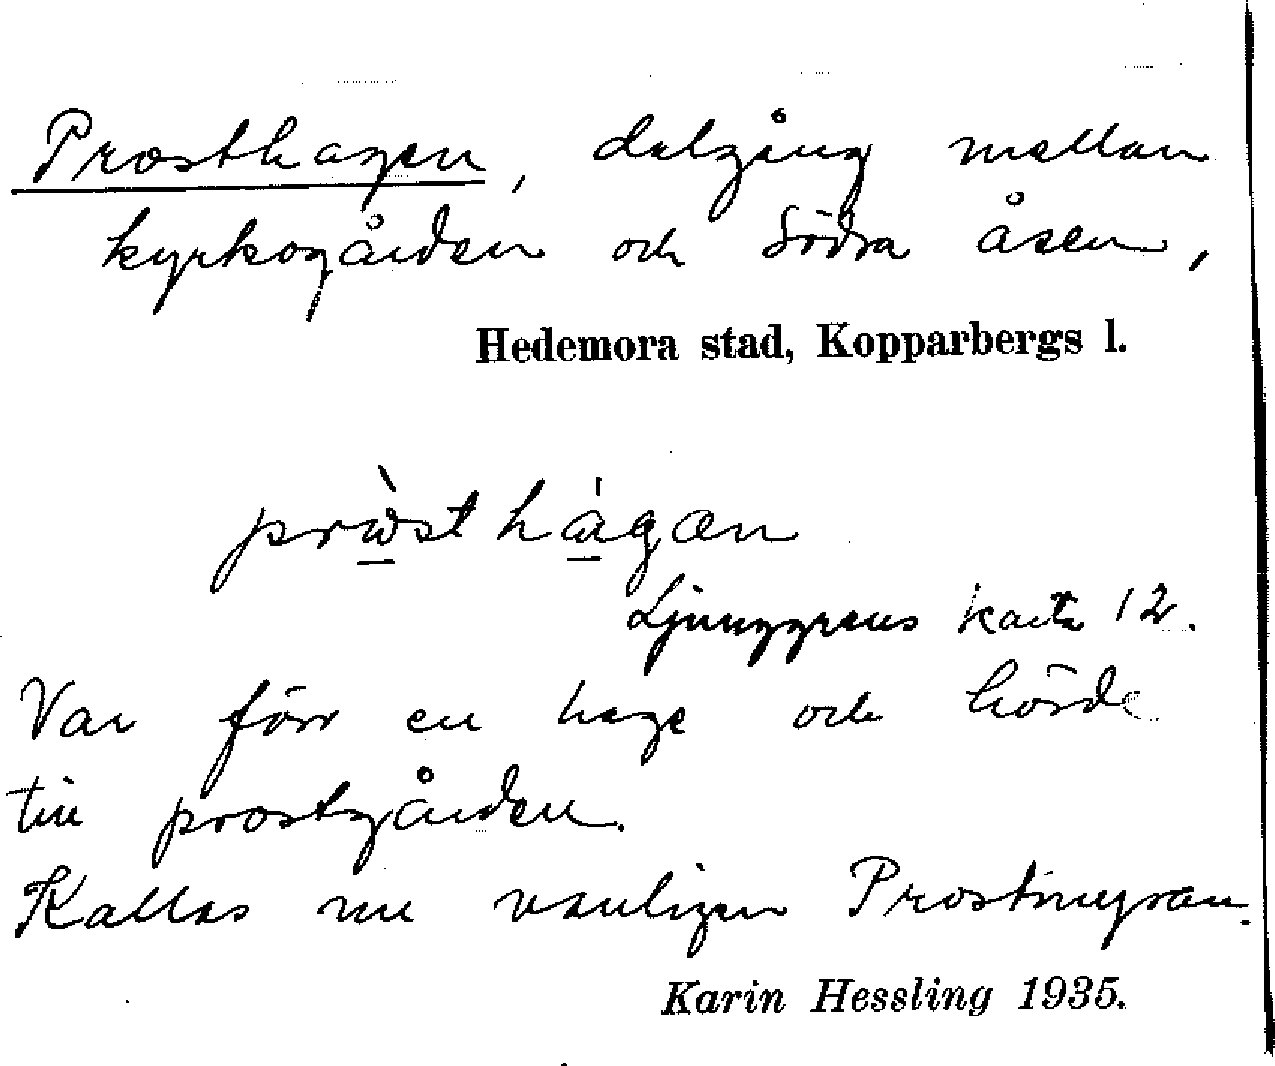 Prosthagen, dalgång mellan
kyrkogården och Södra åsen,
Hedemora stad, Kopparbergs l.
Ljunggrens karta 12.
Var förr en hage och hörde
till prostgården.
Kallas nu vanligen Prostmyran.
Karin Hessling 1935.